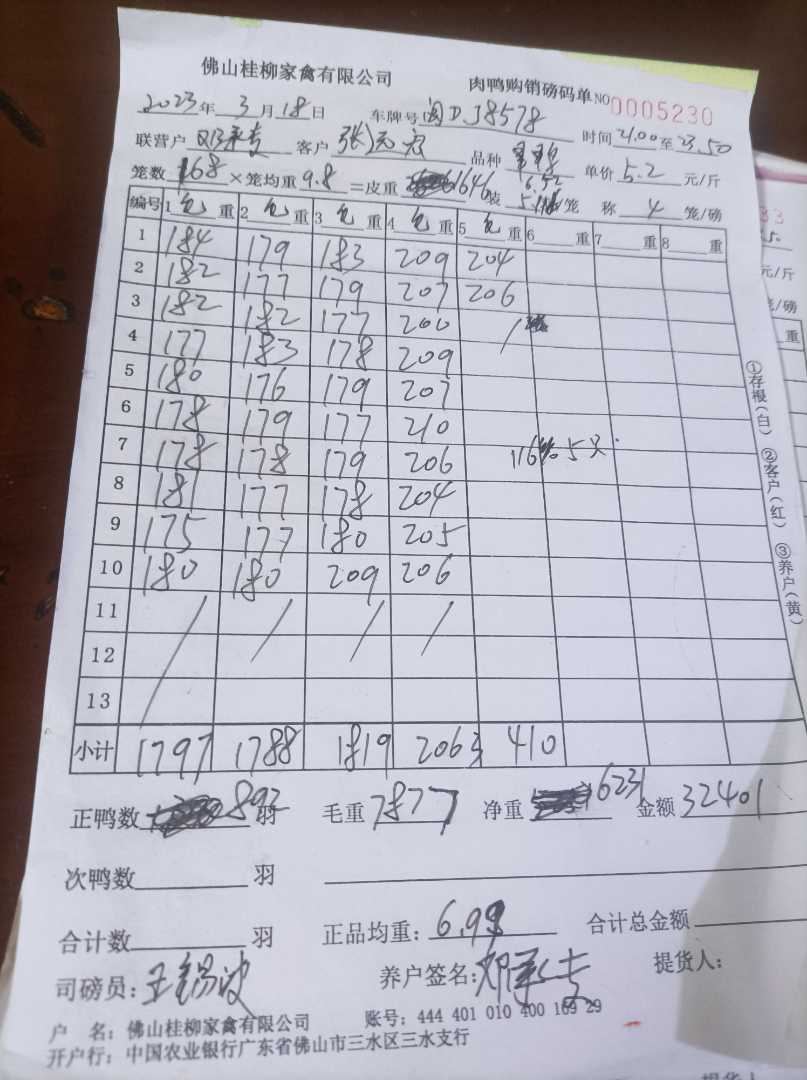 佛山桂柳家禽有限公司 肉鸭购销磅码单 NO 0005230
2023年 3月 18日 车牌号 闽DJ8578 时间 21.00 至 23.50
联营户 邓承专 客户 张 品种 单价 5.2 元/斤
笼数 168 ×笼均重 9.8 =皮重 1646 装 笼 称 4 笼/磅
编号 1 重 2 重 3 重 4 重 5 重 6 重 7 重 8 重
1 184 179 183 209 204
2 182 177 179 207 206
3 182 182 177 200
4 177 183 178 209
5 180 176 179 207
6 178 179 177 210
7 178 178 179 206 116 5只
8 181 177 178 204
9 175 177 180 205
10 180 180 209 206
11
12
13
小计 1797 1788 1819 2063 410
正鸭数 892 羽 毛重 7877 净重 6231 金额 32401
次鸭数 羽
合计数 羽 正品均重: 6.99 合计总金额
司磅员: 王锡波 养户签名: 邓承专 提货人:
户 名: 佛山桂柳家禽有限公司 账号: 444 401 010 400 169 29
开户行: 中国农业银行广东省佛山市三水区三水支行
①存根(白) ②客户(红) ③养户(黄)
33
5.
元/斤
笼/磅
重